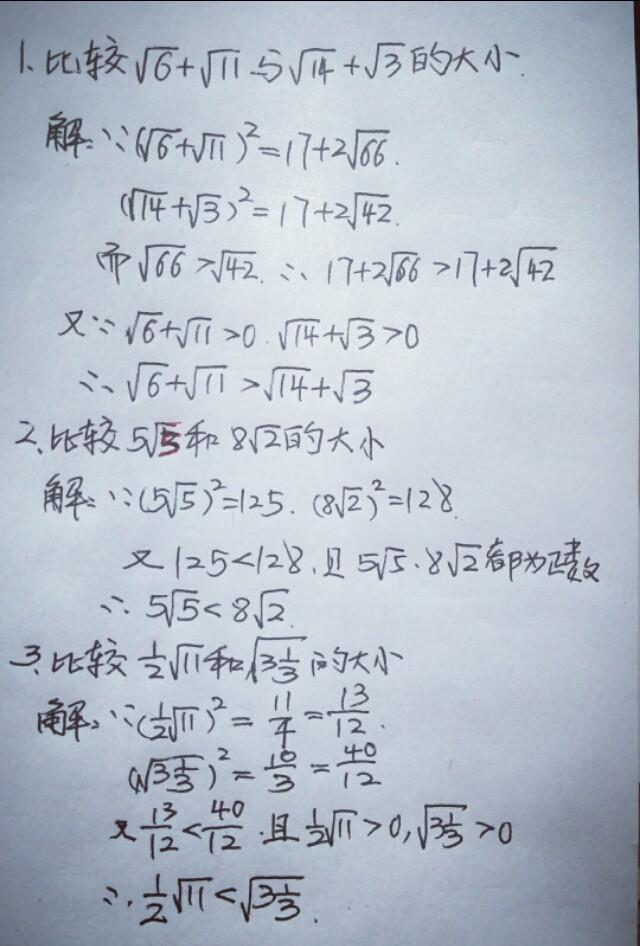 1. 比较√6+√11与√14+√3的大小.
解:∵(√6+√11)²=17+2√66.
(√14+√3)²=17+2√42.
而√66>√42.∴17+2√66>17+2√42
又∵√6+√11>0.√14+√3>0
∴√6+√11>√14+√3
2.比较5√5和8√2的大小
解:∵(5√5)²=125.(8√2)²=128.
又125<128.且5√5.8√2都为正数
∴5√5<8√2.
3.比较1/2√11和√(3 1/3)的大小
解:∵(1/2√11)²=11/4=13/12.
(√(3 1/3))²=10/3=40/12
又13/12<40/12.且1/2√11>0,√(3 1/3)>0
∴.1/2√11<√(3 1/3).